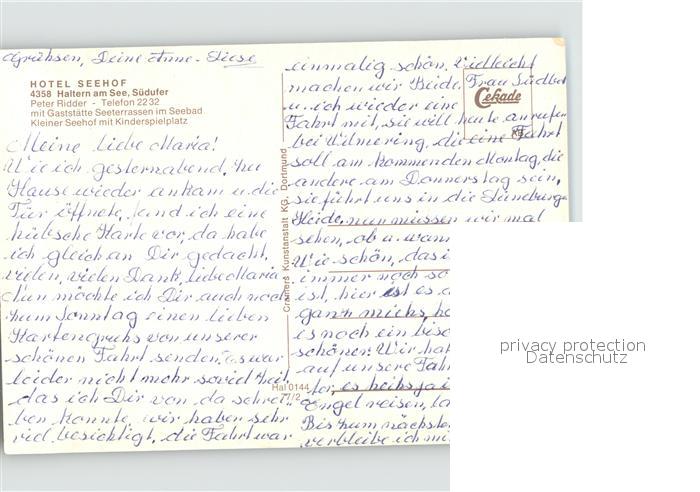 Grühsen, Deine Anne-Liese
HOTEL SEEHOF
4358 Haltern am See, Südufer
Peter Ridder - Telefon 22 32
mit Gaststätte Seeterrassen im Seebad
Kleiner Seehof mit Kinderspielplatz
Meine liebe Maria!
Wie ich gestern abend, zu
Hause wieder ankam u. die
Tür öffnete, fand ich eine
hübsche Karte vor, da habe
ich gleich an Dir gedacht,
vielen, vielen Dank, liebe Maria
Nun möchte ich Dir auch noch
zum Sonntag einen lieben
Kartengruhs von unserer
schönen Fahrt senden. Es war
leider nicht mehr soviel Zeit
das ich Dir von da schrei-
ben konnte, wir haber sehr
viel besichtigt, die Fahrt war
Cramers Kunstanstalt KG, Dortmund
Hal 0144
77/2
einmalig schön. Vielleicht
machen wir Beide, Frau Südbeck
u. ich wieder eine
Fahrt mit, sie will heute anrufen
bei Wilmering, die eine Fahrt
soll am kommenden Montag, die
andere am Donnerstag sein,
sie führt uns in die Lüneburger
Heide, nun müssen wir mal
sehen, ob u. wann
Wie schön, das
immer noch so
ist, hier ist es
ganz miehs,
is noch ein bisc
schöner. Wir hat
auf unsere Fahr
ter, es heihs ja
Engel reisen,
Bis zum nächste
verbleibe ich mi
Cekade
privacy protection
Datenschutz